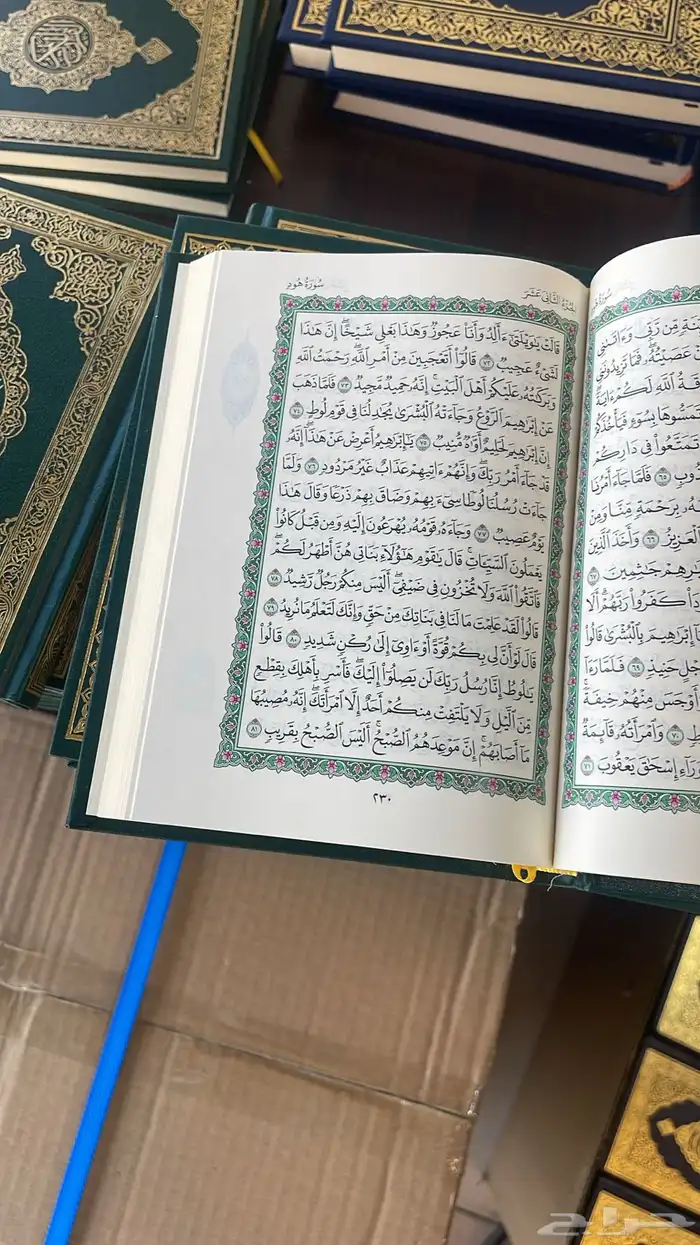 سُورَةُ هُودٍ
الجُزْءُ الثَّانِي عَشَرَ
قَالَتْ يَٰوَيْلَتَىٰٓ ءَأَلِدُ وَأَنَا۠ عَجُوزٌ وَهَٰذَا بَعْلِي شَيْخًا ۖ إِنَّ هَٰذَا
لَشَيْءٌ عَجِيبٌ ٧٢ قَالُوٓا۟ أَتَعْجَبِينَ مِنْ أَمْرِ ٱللَّهِ ۖ رَحْمَتُ ٱللَّهِ
وَبَرَكَٰتُهُۥ عَلَيْكُمْ أَهْلَ ٱلْبَيْتِ ۚ إِنَّهُۥ حَمِيدٌ مَّجِيدٌ ٧٣ فَلَمَّا ذَهَبَ
عَنْ إِبْرَٰهِيمَ ٱلرَّوْعُ وَجَآءَتْهُ ٱلْبُشْرَىٰ يُجَٰدِلُنَا فِي قَوْمِ لُوطٍ ٧٤
إِنَّ إِبْرَٰهِيمَ لَحَلِيمٌ أَوَّٰهٌ مُّنِيبٌ ٧٥ يَٰٓإِبْرَٰهِيمُ أَعْرِضْ عَنْ هَٰذَآ ۖ إِنَّهُۥ
قَدْ جَآءَ أَمْرُ رَبِّكَ ۖ وَإِنَّهُمْ ءَاتِيهِمْ عَذَابٌ غَيْرُ مَرْدُودٍ ٧٦ وَلَمَّا
جَآءَتْ رُسُلُنَا لُوطًا سِيٓءَ بِهِمْ وَضَاقَ بِهِمْ ذَرْعًا وَقَالَ هَٰذَا
يَوْمٌ عَصِيبٌ ٧٧ وَجَآءَهُۥ قَوْمُهُۥ يُهْرَعُونَ إِلَيْهِ وَمِن قَبْلُ كَانُوا۟
يَعْمَلُونَ ٱلسَّيِّـَٔاتِ ۚ قَالَ يَٰقَوْمِ هَٰٓؤُلَآءِ بَنَاتِي هُنَّ أَطْهَرُ لَكُمْ ۖ
فَٱتَّقُوا۟ ٱللَّهَ وَلَا تُخْزُونِ فِي ضَيْفِيٓ ۖ أَلَيْسَ مِنكُمْ رَجُلٌ رَّشِيدٌ ٧٨
قَالُوا۟ لَقَدْ عَلِمْتَ مَا لَنَا فِي بَنَاتِكَ مِنْ حَقٍّ وَإِنَّكَ لَتَعْلَمُ مَا نُرِيدُ ٧٩
قَالَ لَوْ أَنَّ لِي بِكُمْ قُوَّةً أَوْ ءَاوِيٓ إِلَىٰ رُكْنٍ شَدِيدٍ ٨٠ قَالُوا۟
يَٰلُوطُ إِنَّا رُسُلُ رَبِّكَ لَن يَصِلُوٓا۟ إِلَيْكَ ۖ فَأَسْرِ بِأَهْلِكَ بِقِطْعٍ
مِّنَ ٱلَّيْلِ وَلَا يَلْتَفِتْ مِنكُمْ أَحَدٌ إِلَّا ٱمْرَأَتَكَ ۖ إِنَّهُۥ مُصِيبُهَا
مَآ أَصَابَهُمْ ۚ إِنَّ مَوْعِدَهُمُ ٱلصُّبْحُ ۚ أَلَيْسَ ٱلصُّبْحُ بِقَرِيبٍ ٨١
٢٣٠
مِّن رَّبِّي وَءَاتَىٰنِي
عَصَيْتُهُۥ ۖ فَمَا تَزِيدُونَنِي
ٱللَّهِ لَكُمْ ءَايَةً
تَمَسُّوهَا بِسُوٓءٍ فَيَأْخُذَكُمْ
تَمَتَّعُوا۟ فِي دَارِكُمْ
٦٥ فَلَمَّا جَآءَ أَمْرُنَا
بِرَحْمَةٍ مِّنَّا وَمِنْ
ٱلْعَزِيزُ ٦٦ وَأَخَذَ ٱلَّذِينَ
جَٰثِمِينَ ٦٧
كَفَرُوا۟ رَبَّهُمْ ۗ أَلَا
إِبْرَٰهِيمَ بِٱلْبُشْرَىٰ قَالُوا۟
حَنِيذٍ ٦٩ فَلَمَّا رَءَآ
وَأَوْجَسَ مِنْهُمْ خِيفَةً ۚ
٧٠ وَٱمْرَأَتُهُۥ قَآئِمَةٌ
وَرَآءِ إِسْحَٰقَ يَعْقُوبَ ٧١
حراج